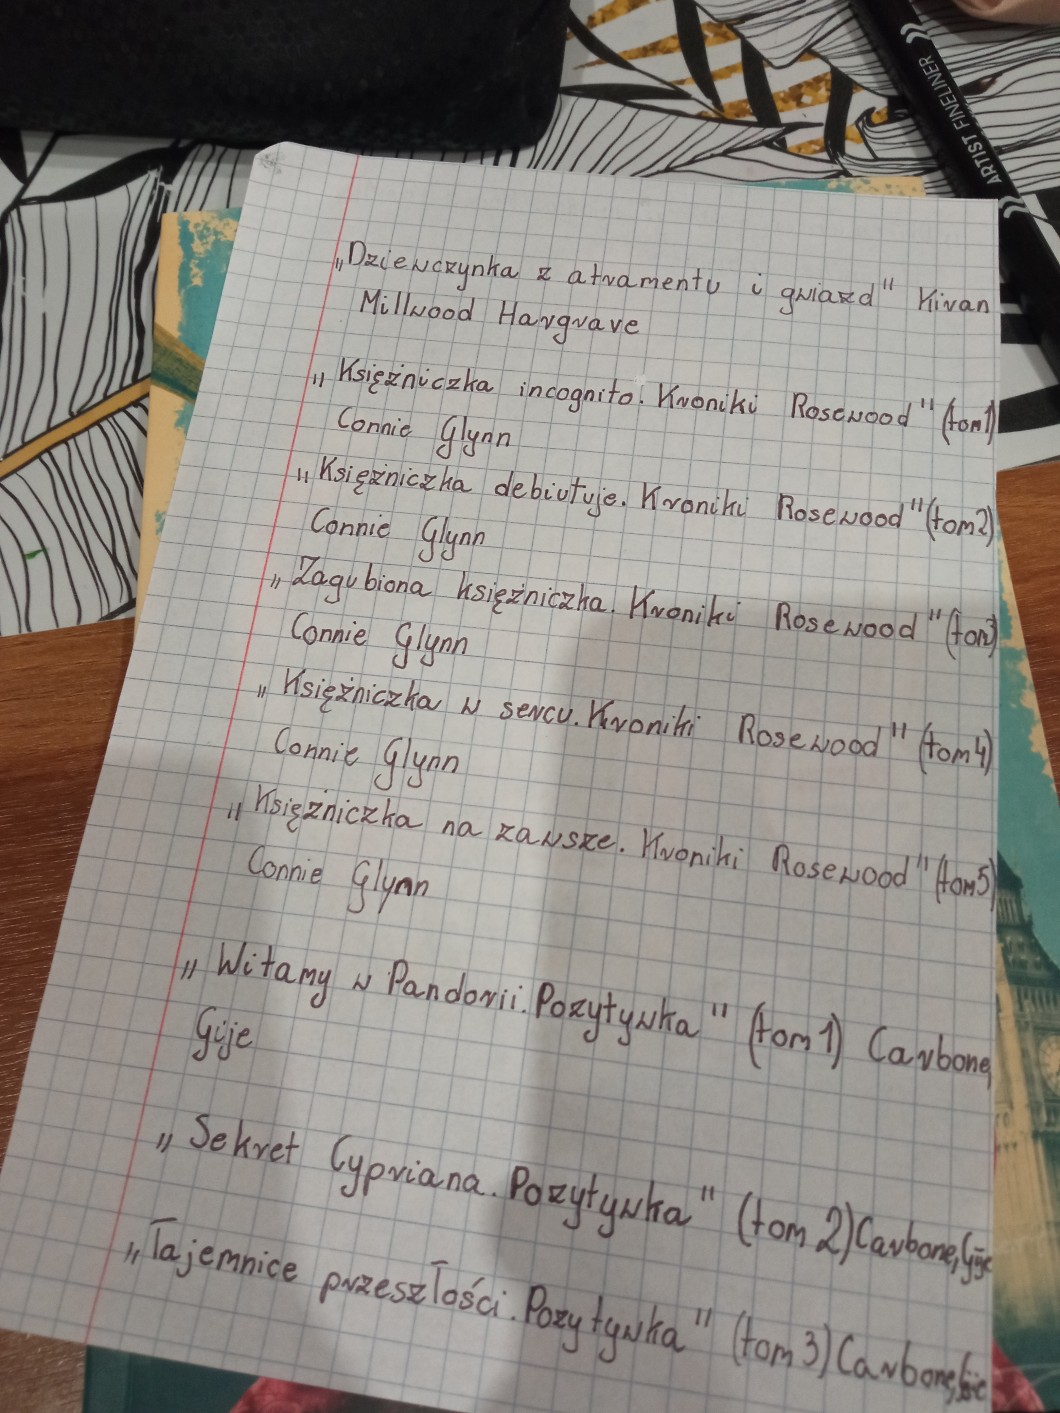 ARTIST FINELINER
„Dziewczynka z atramentu i gwiazd" Kiran
Millwood Hargrave
„Księżniczka incognito. Kroniki Rosewood" (tom1)
Connie Glynn
„Księżniczka debiutuje. Kroniki Rosewood" (tom2)
Connie Glynn
„Zagubiona księżniczka. Kroniki Rosewood" (tom3)
Connie Glynn
„Księżniczka w sercu. Kroniki Rosewood" (tom4)
Connie Glynn
„Księżniczka na zawsze. Kroniki Rosewood" (tom5)
Connie Glynn
„Witamy w Pandorii. Pozytywka" (tom 1) Carbone,
Gije
„Sekret Cypriana. Pozytywka" (tom 2) Carbone, Gije
„Tajemnice przeszłości. Pozytywka" (tom 3) Carbone, Gije